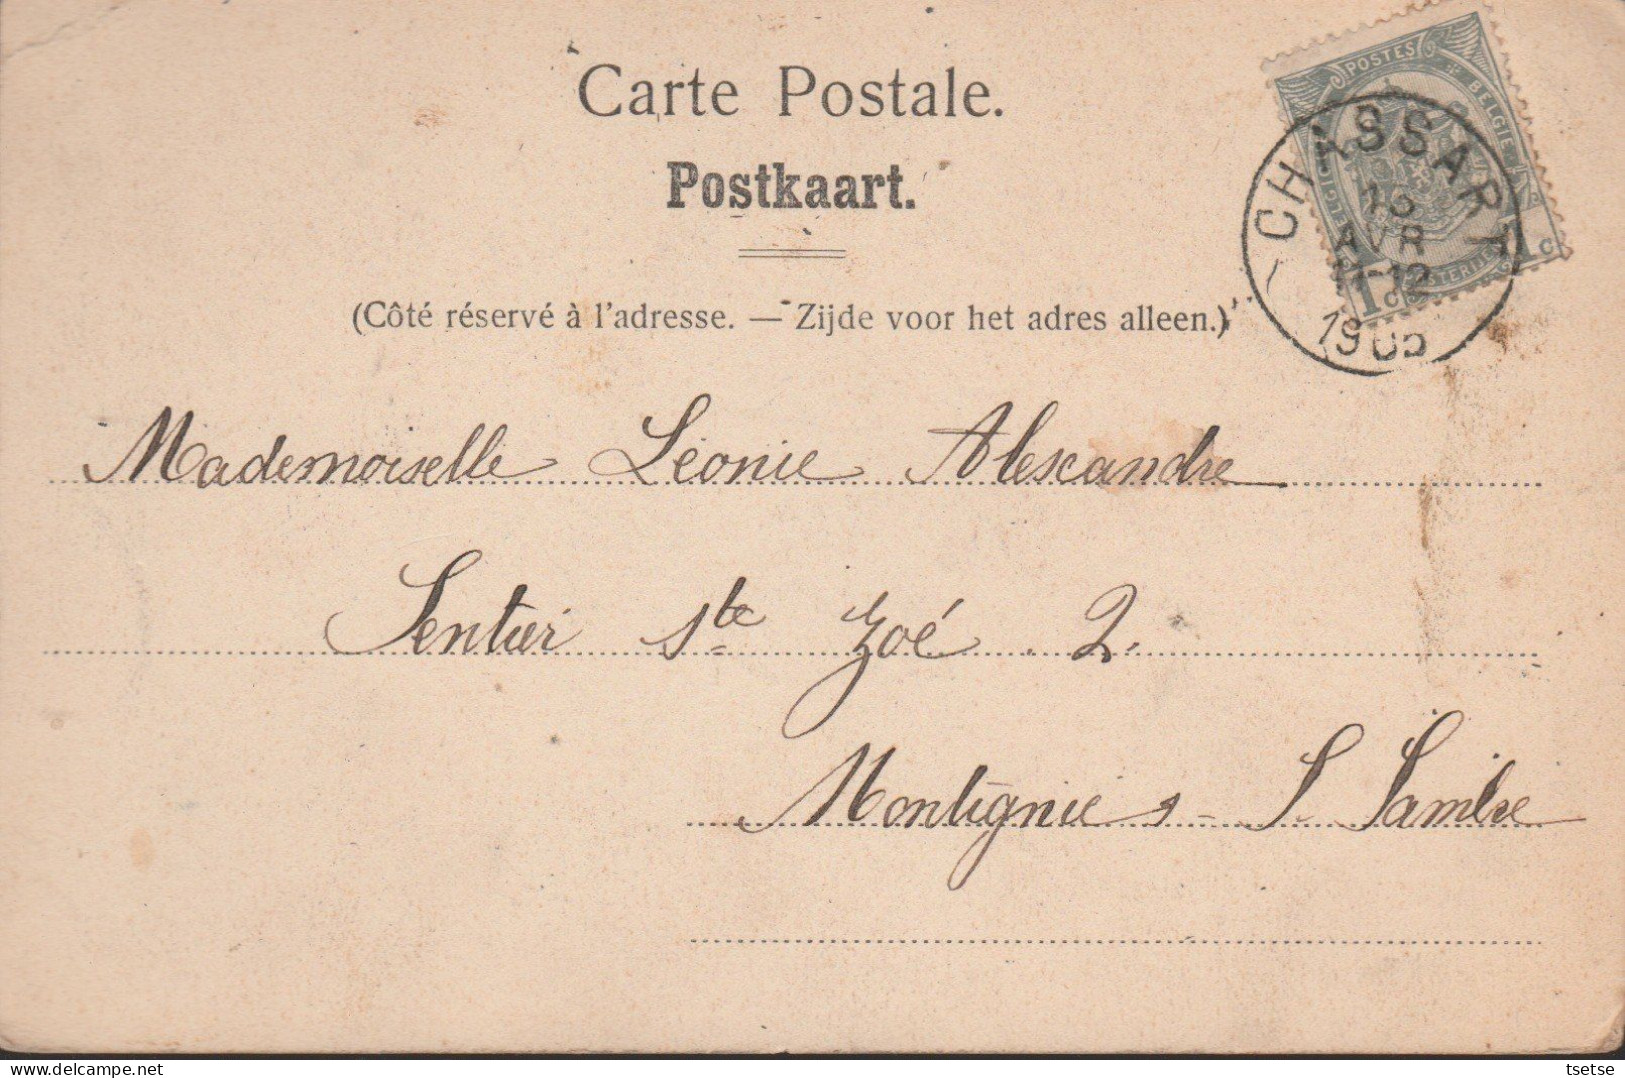 Carte Postale.
Postkaart.
(Côté réservé à l'adresse. — Zijde voor het adres alleen.)
POSTES BELGIE
1c 1c
CHASSART
AVR
11-12
1905
Mademoiselle Léonie Alexandre
Sentier Ste Zoé 2.
Montignies - S. Sambre
tsetse